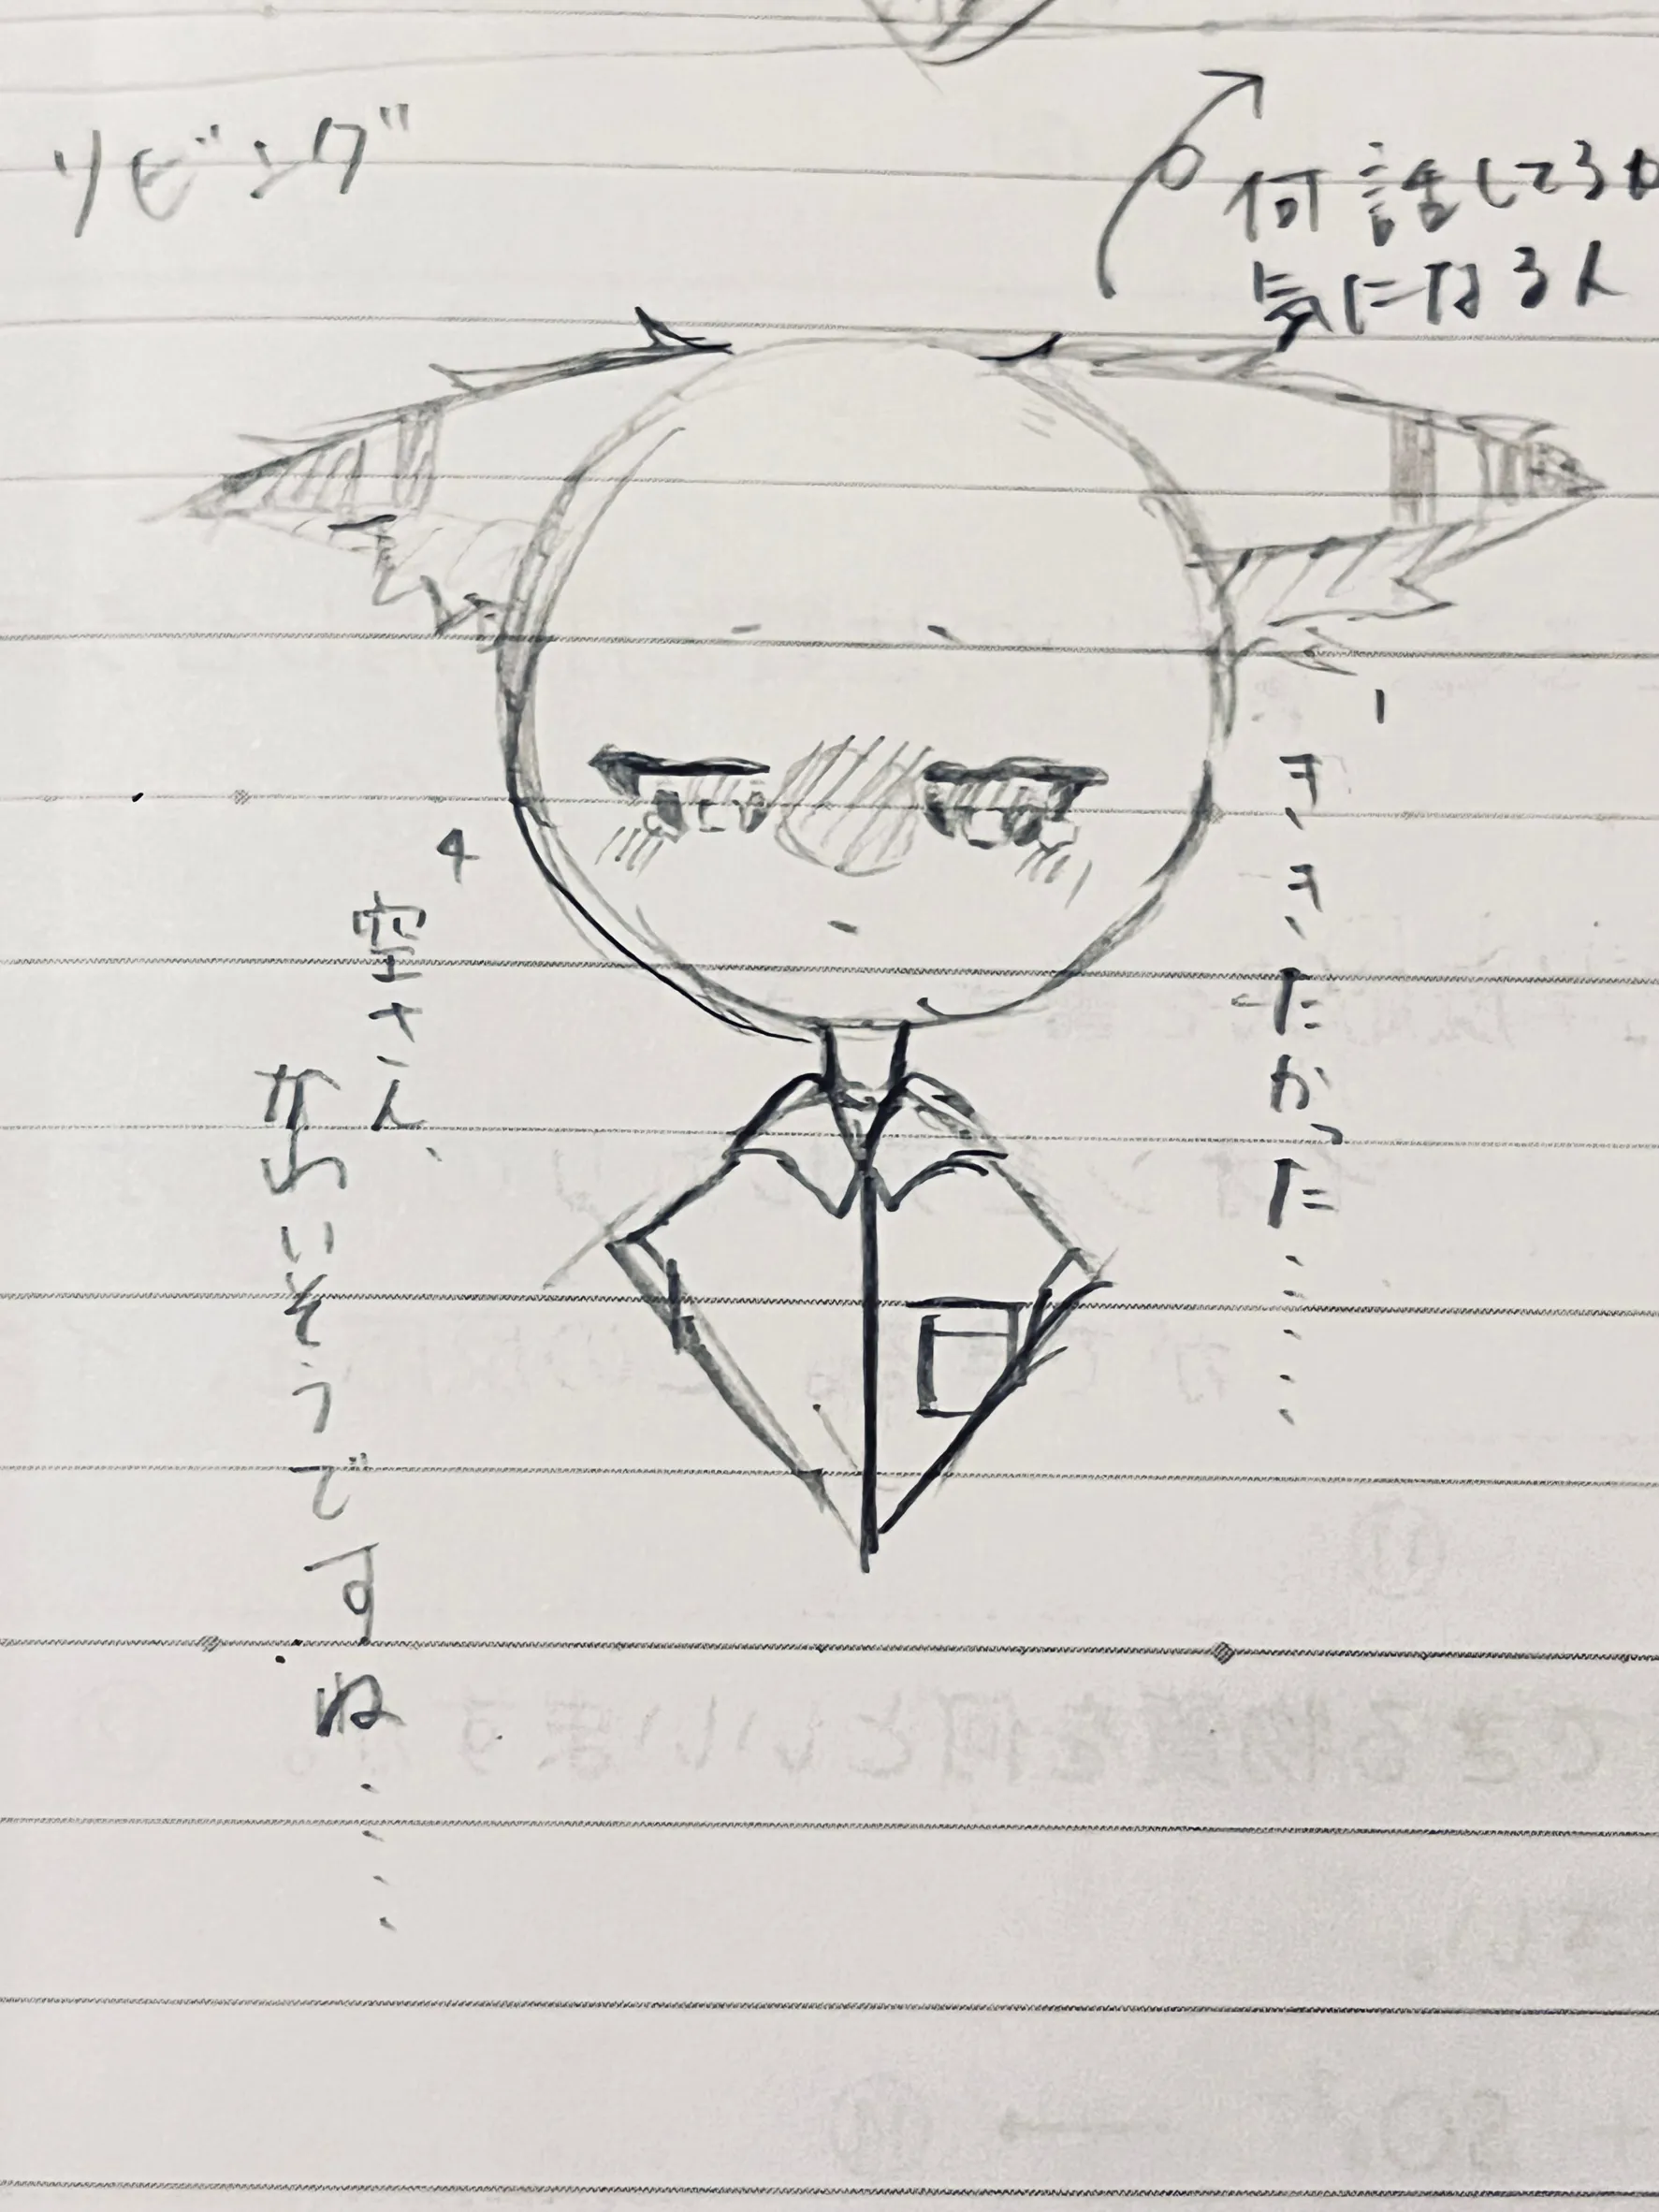 リビング
何話してるか
気になる人
ききたかった……
空さん、
かわいそうですね……